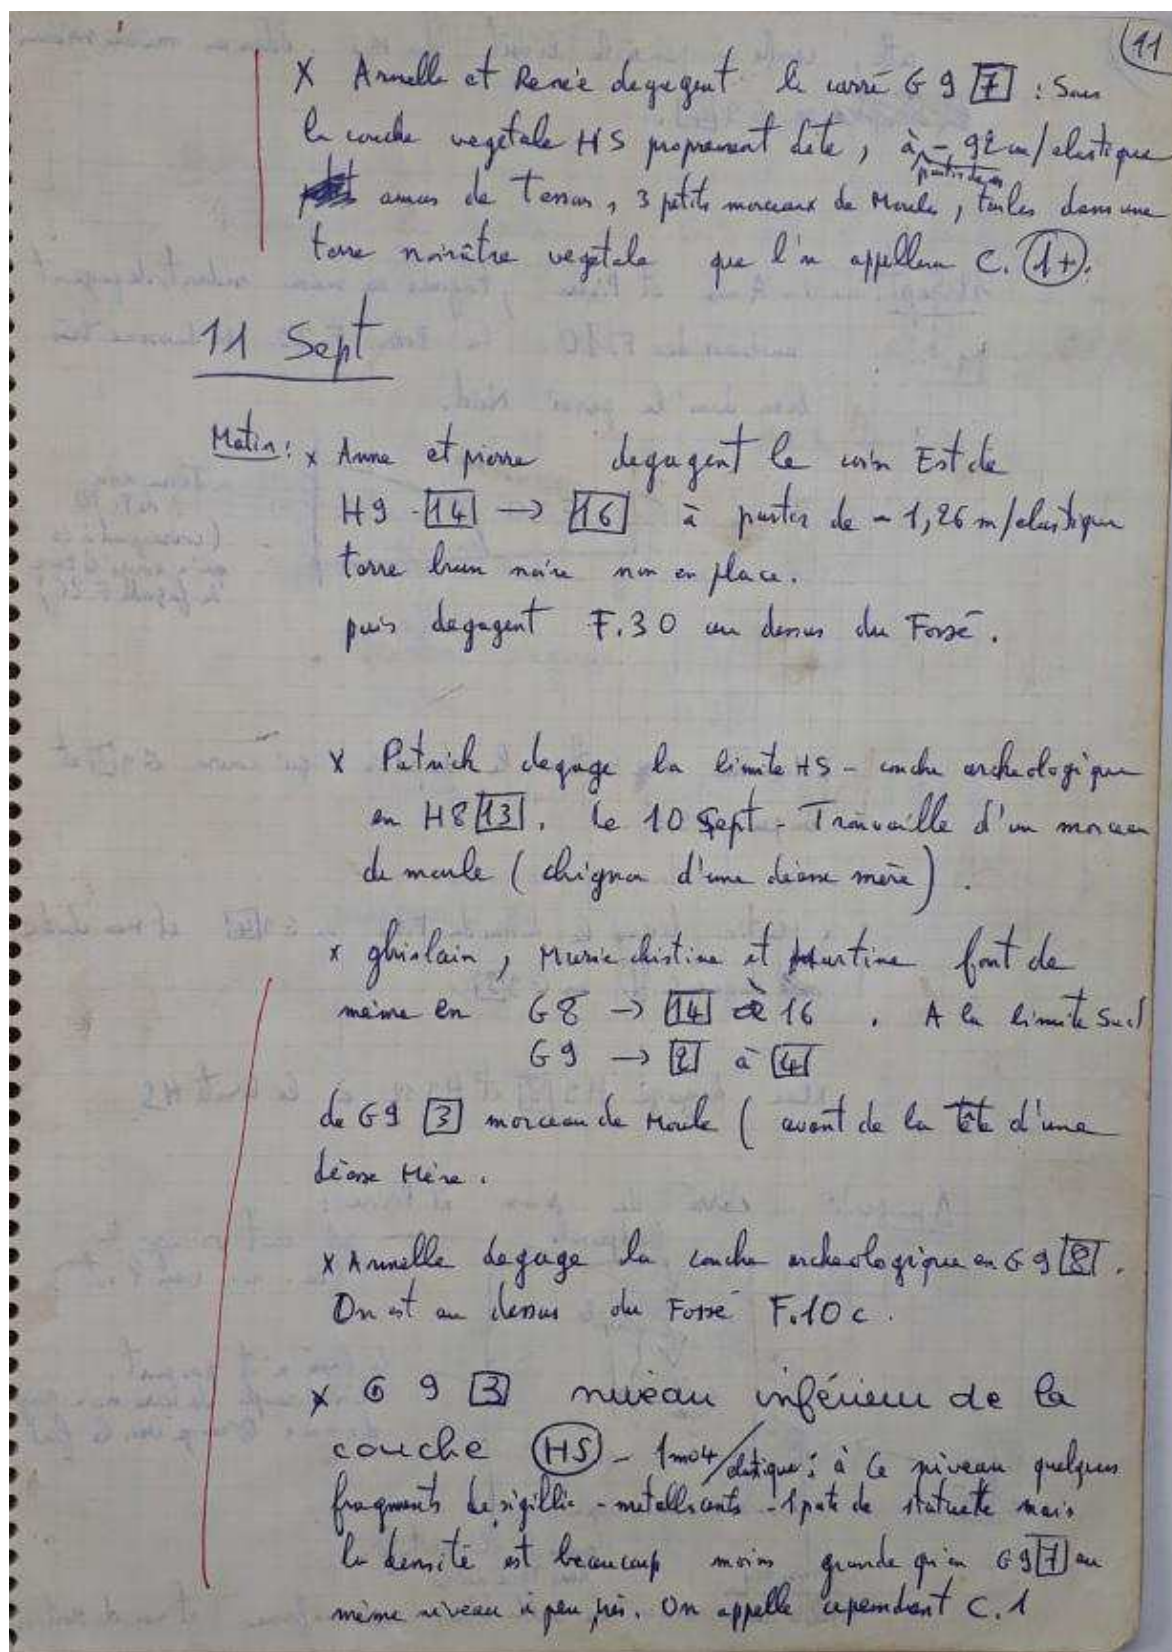 11
X Annelle et Renée degagent le carré G 9 [7] : Sous
la couche vegetale HS proprement dite, à - 92 cm/elastique
partir de
amas de Tessons, 3 petits morceaux de Moules, tuiles dans une
terre noirâtre vegetale que l'on appellera C. (1+).
11 Sept
Matin : x Anne et pierre degagent le coin Est de
H9 - [14] → [16] à partir de - 1,26 m/elastique
terre brun noire non en place.
puis degagent F.30 au dessus du Fossé.
X Patrick degage la limite HS - couche archeologique
en H8 [13]. Le 10 Sept - Trouvaille d'un morceau
de moule (chignon d'une déesse mère).
x ghislain, Marie christine et Martine font de
même en G8 → [14] à 16 . A la limite Sud
G9 → [2] à [4]
de G9 [3] morceau de Moule ( avant de la tête d'une
déesse Mère.
X Annelle degage la couche archeologique en G9 [8].
On est au dessus du Fossé F.10 c.
x G 9 [3] niveau inférieur de la
couche (HS) - 1m04/elastique : à ce niveau quelques
fragments de sigillée - metallescents - 1 pate de statuette mais
la densité est beaucoup moins grande qu'en G9 [7] au
même niveau à peu près. On appelle cependant C.1